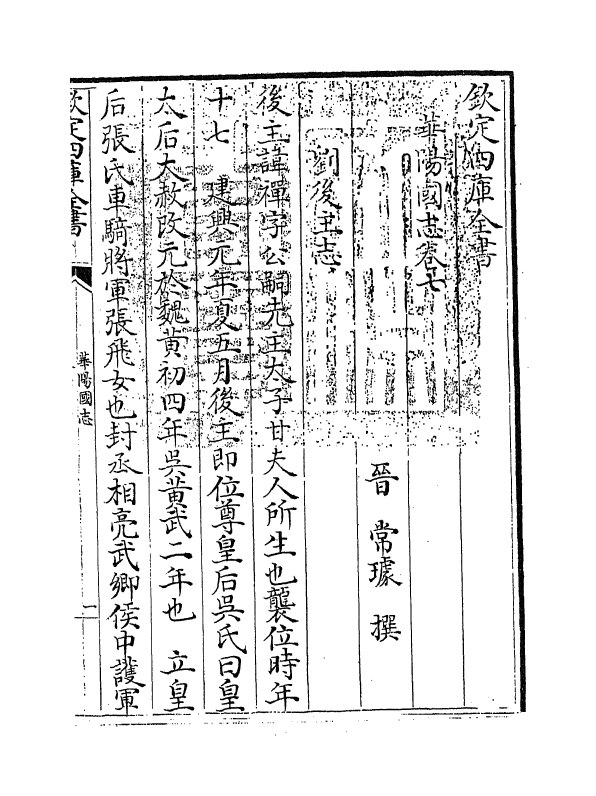 欽定四庫全書
華陽國志卷七
晉 常璩 撰
劉後主志
後主諱禪字公嗣先主太子甘夫人所生也襲位時年
十七 建興元年夏五月後主即位尊皇后吳氏曰皇
太后大赦改元於魏黃初四年吳黃武二年也 立皇
后張氏車騎將軍張飛女也封丞相亮武鄉侯中護軍
欽定四庫全書
華陽國志
一